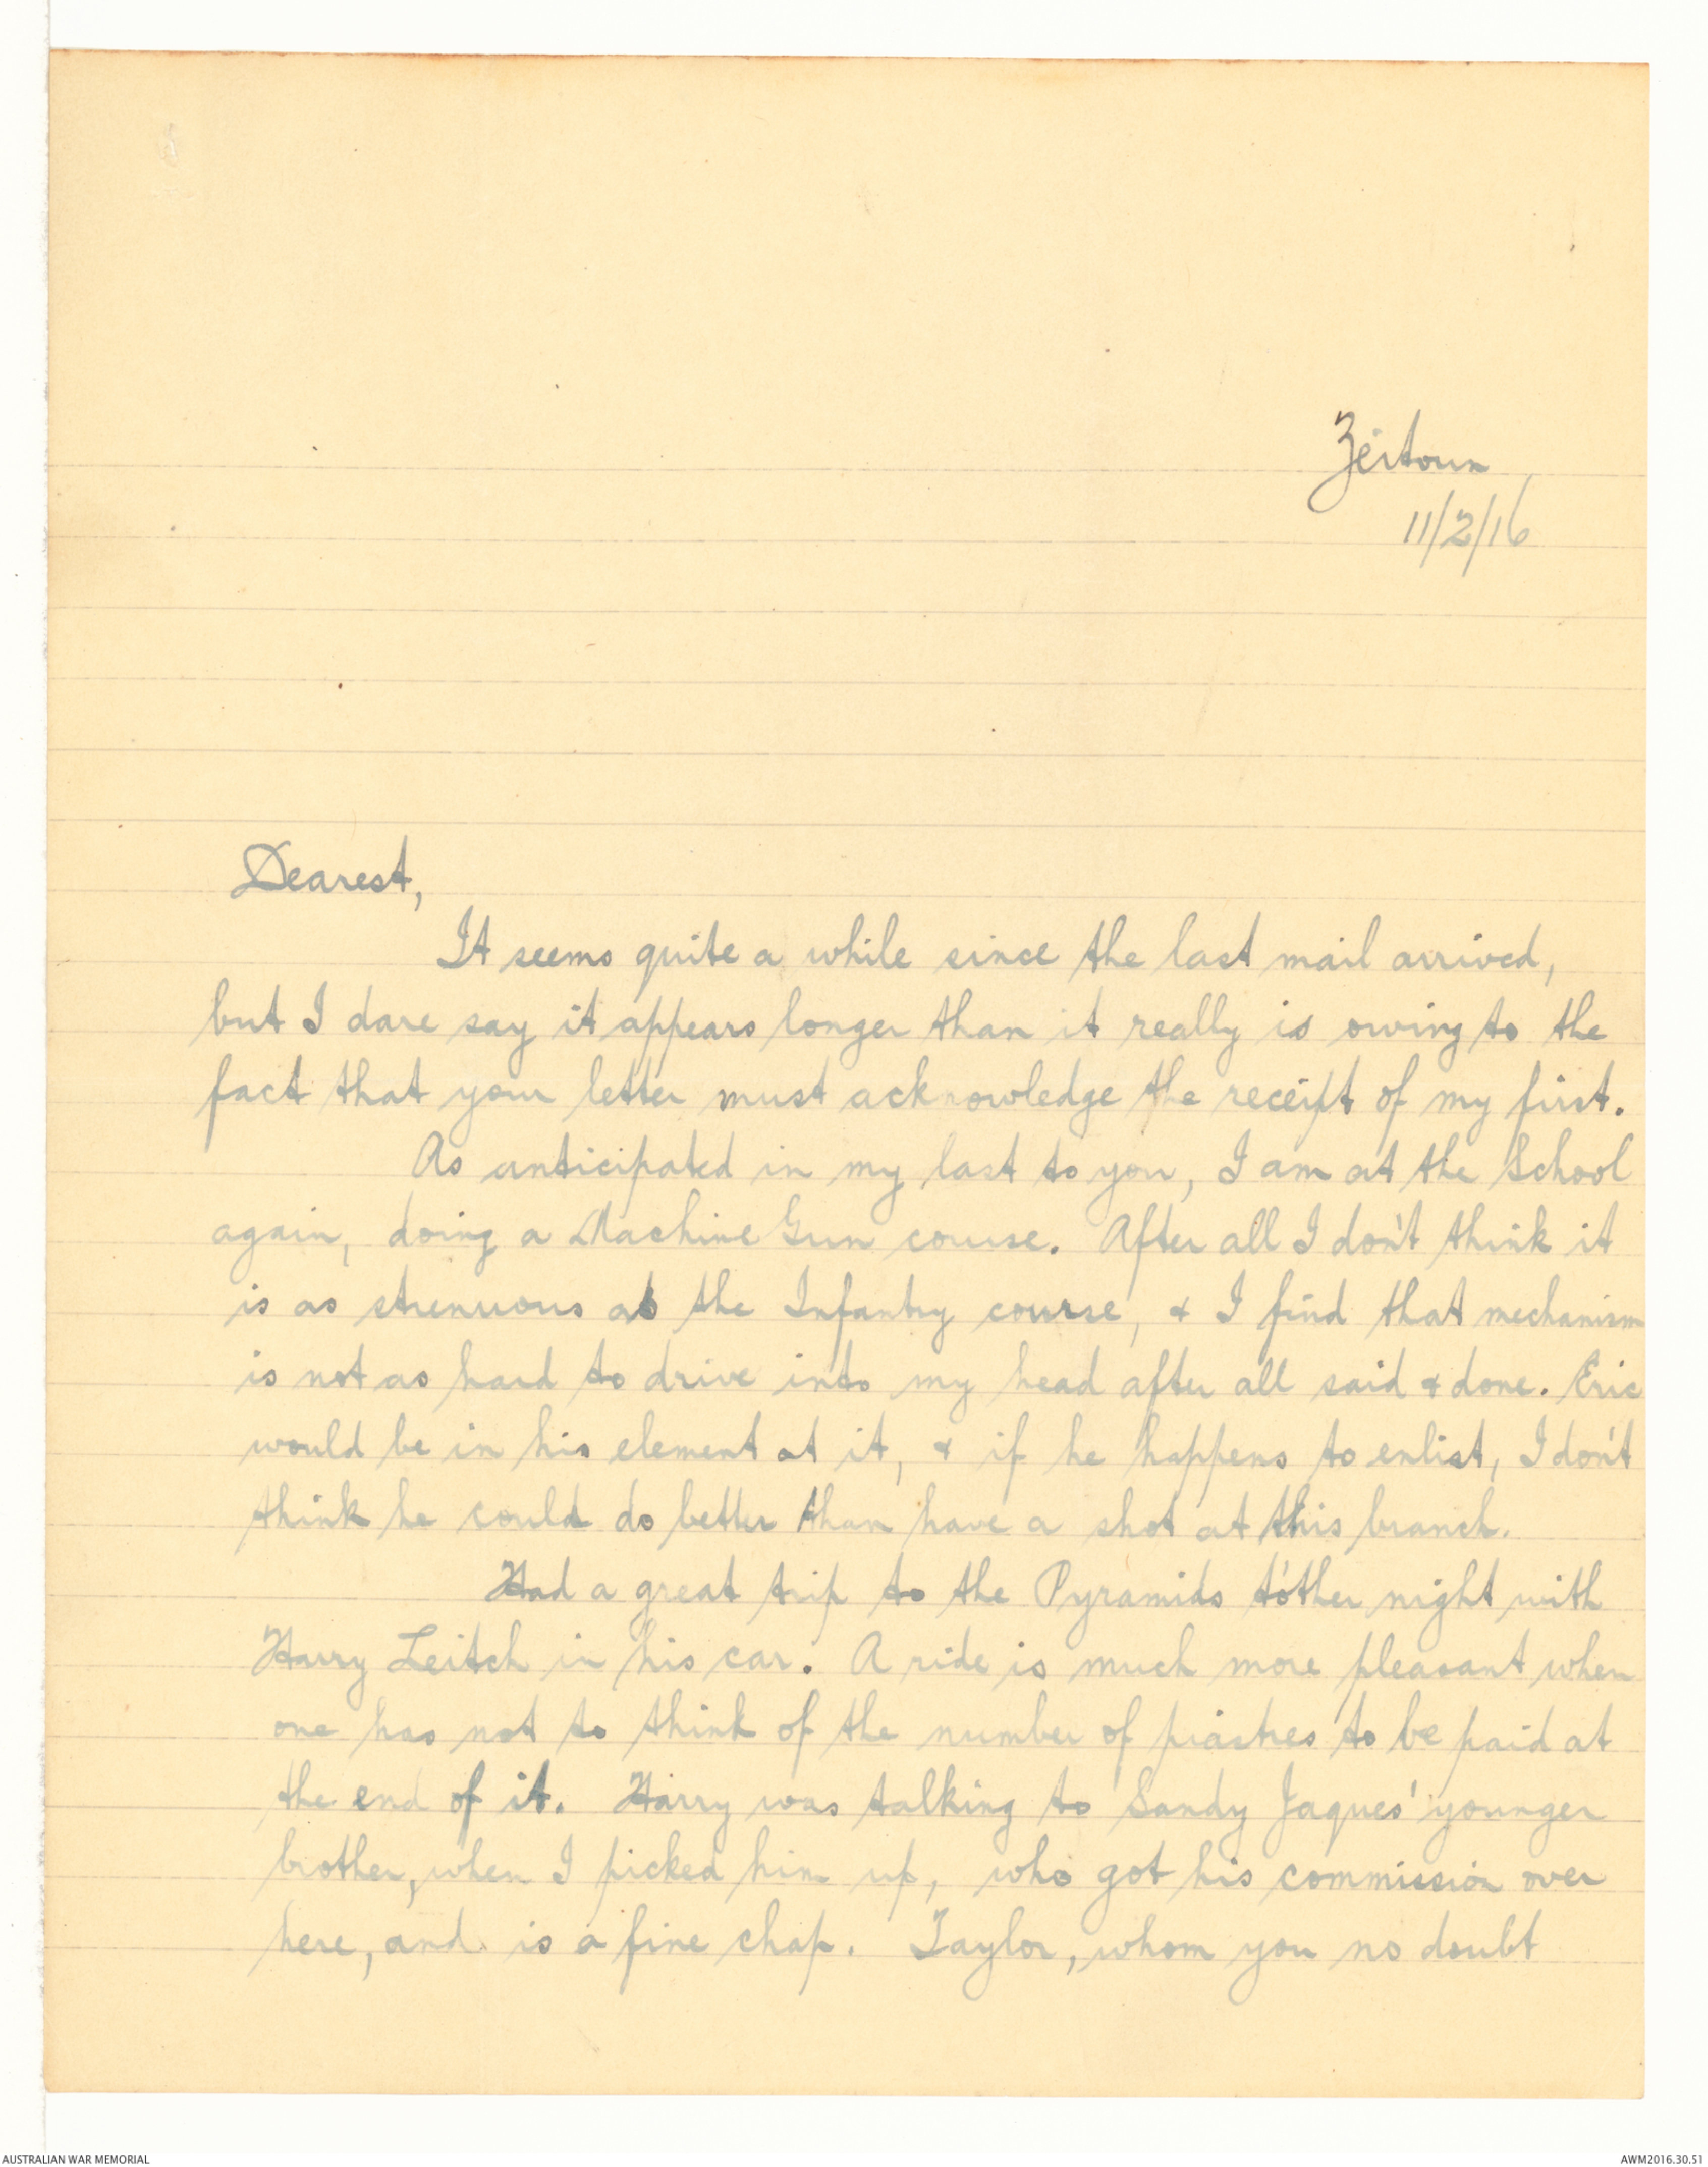 Zeitoun
11/2/16
Dearest,
It seems quite a while since the last mail arrived,
but I dare say it appears longer than it really is owing to the
fact that your letter must acknowledge the receipt of my first.
As anticipated in my last to you, I am at the School
again, doing a Machine Gun course. After all I don't think it
is as strenuous as the Infantry course, & I find that mechanism
is not as hard to drive into my head after all said & done. Eric
would be in his element at it, & if he happens to enlist, I don't
think he could do better than have a shot at this branch.
Had a great trip to the Pyramids t'other night with
Harry Leitch in his car. A ride is much more pleasant when
one has not to think of the number of piastres to be paid at
the end of it. Harry was talking to Sandy Jaques' younger
brother, when I picked him up, who got his commission over
here, and is a fine chap. Taylor, whom you no doubt
AUSTRALIAN WAR MEMORIAL
AWM2016.30.51